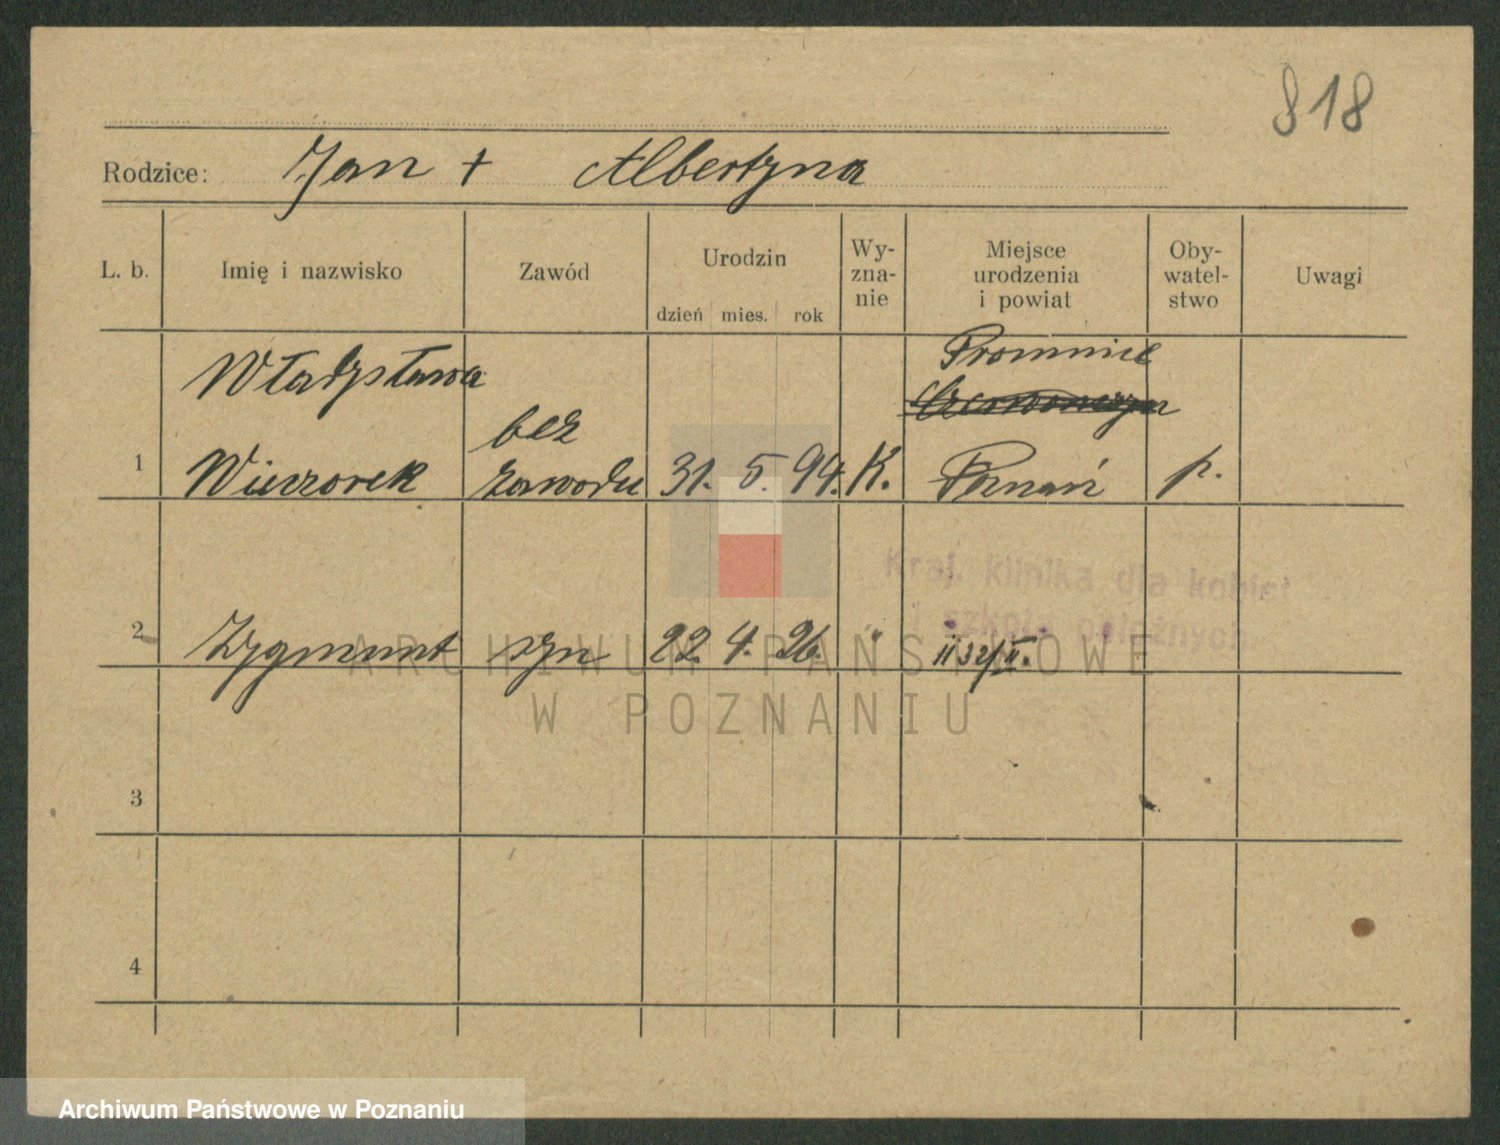 818
Rodzice: Jan + Albertyna
L. b. Imię i nazwisko Zawód Urodzin dzień mies. rok Wy-zna-nie Miejsce urodzenia i powiat Oby-watel-stwo Uwagi
Władysława Promnice
bez
1 Wieczorek zawodu 31. 5. 94. K. Poznań p.
Kraj. klinika dla kobiet
i szkoła położnych
2 Zygmunt syn 22. 4. 26. "
ARCHIWUM PAŃSTWOWE
W POZNANIU
3
4
Archiwum Państwowe w Poznaniu